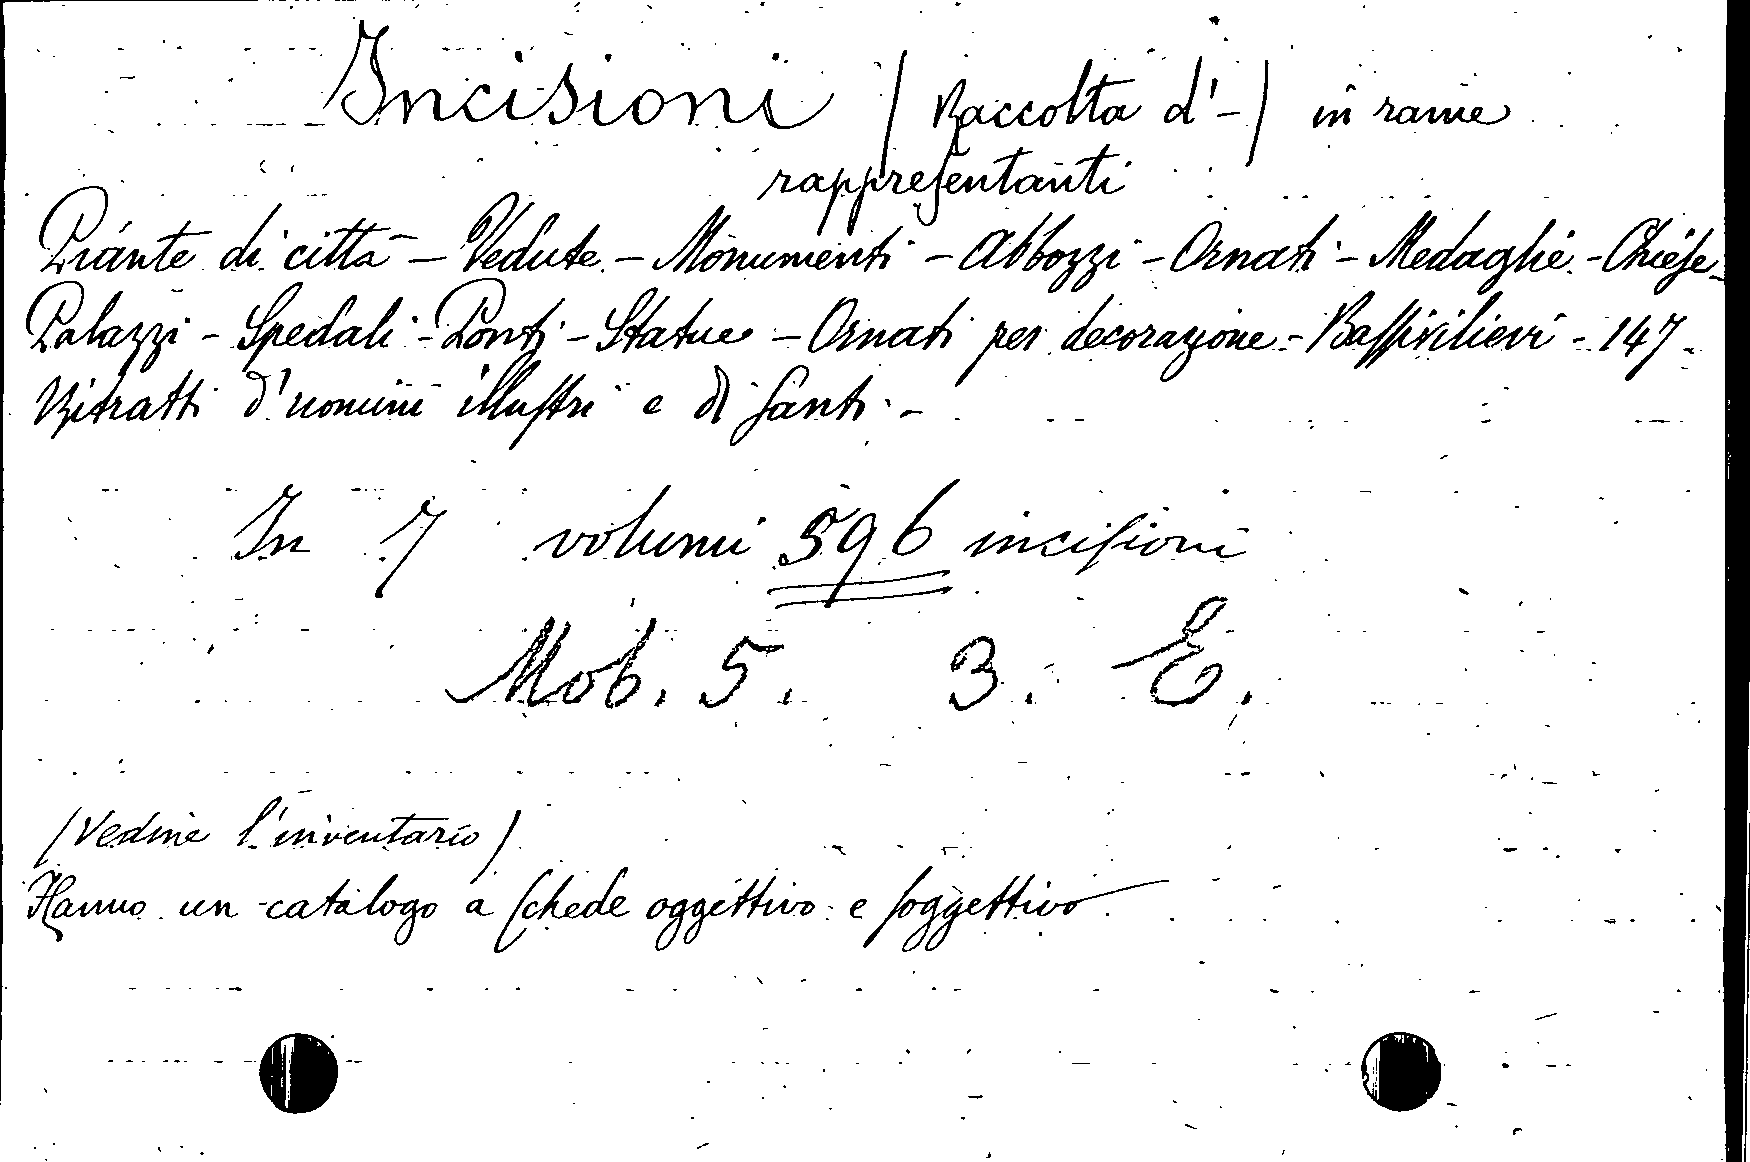 Incisioni (Raccolta d'-) in rame
rappresentanti
Piante di città - Vedute - Monumenti - Abbozzi - Ornati - Medaglie - Chiese -
Palazzi - Spedali - Ponti - Statue - Ornati per decorazione - Bassirilievi - 147 -
Ritratti d'uomini illustri e di santi -
In 7 volumi 596 incisioni
Mob. 5. 3. E.
(Vedine l'inventario)
Hanno un catalogo a schede oggettivo e soggettivo